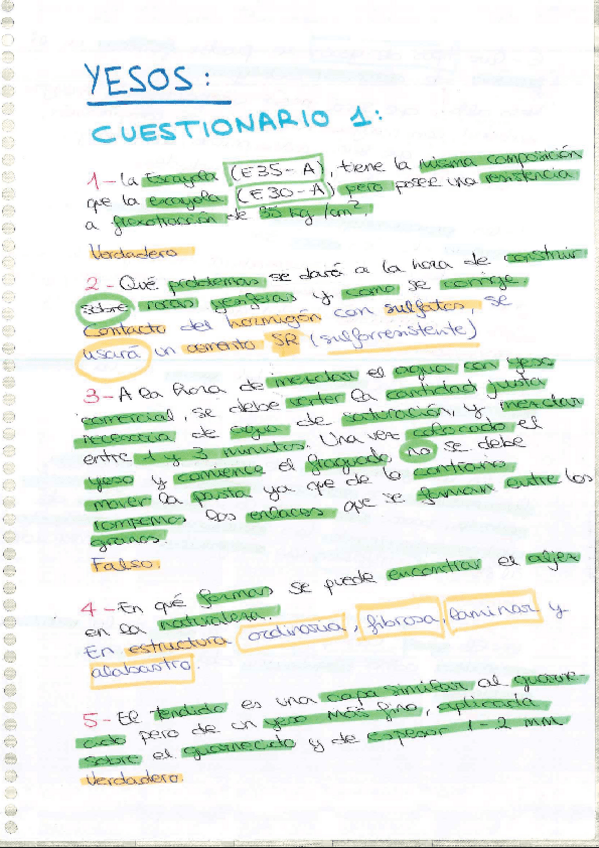 YESOS:
CUESTIONARIO 1:
1- La Escayola (E35-A), tiene la misma composición
que la escayola (E30-A) pero posee una resistencia
a flexotracción de 35 kg/cm².
Verdadero
2- Qué problemas se dará a la hora de construir
sobre rocas yesíferas y como se corrige.
Contacto del hormigón con sulfatos, se
usará un cemento SR (sulforresistente)
3- A la hora de mezclar el agua con yeso
comercial, se debe verter la cantidad justa
necesaria de agua de saturación, y mezclar
entre 1 y 3 minutos. Una vez colocado el
yeso y comience el fraguado no se debe
mover la pasta ya que de lo contrario
rompemos los enlaces que se forman entre los
granos.
Falso.
4- En qué formas se puede encontrar el aljez
en la naturaleza.
En estructura ordinaria, fibrosa, laminar y
alabastro.
5- El tendido es una capa similar al guarne-
cido pero de un yeso más fino, aplicada
sobre el guarnecido y de espesor 1-2 mm
Verdadero.